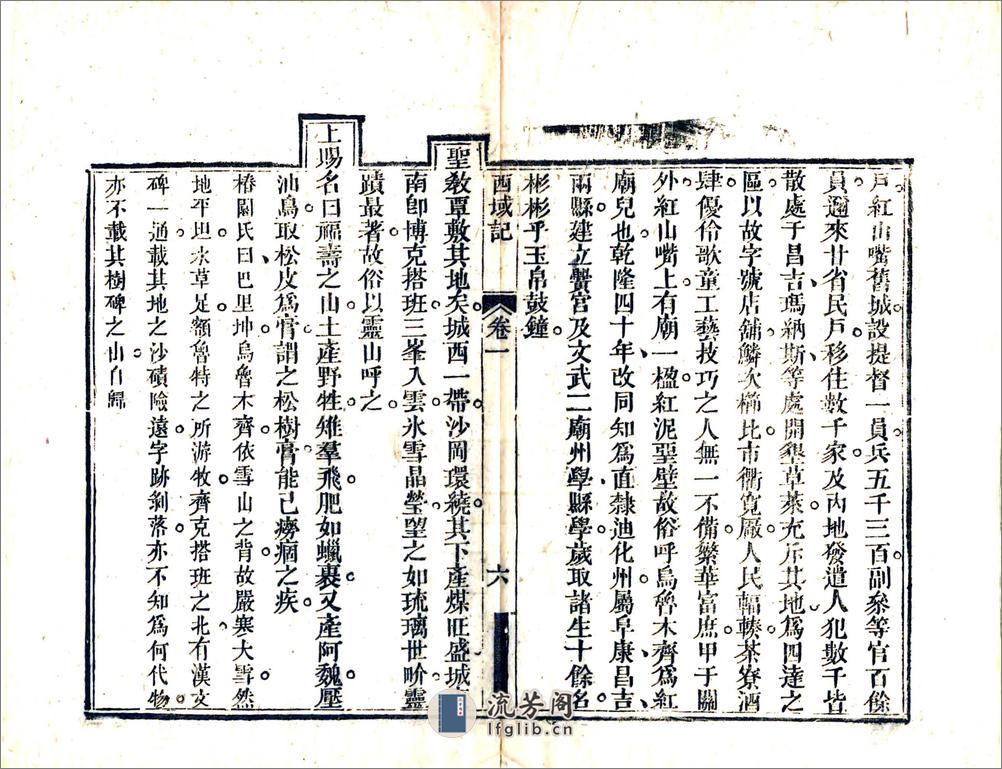 戶紅山嘴舊城設提督一員兵五千三百副叅等官百餘
員邇來甘省民戶移住數千家及內地發遣人犯數千皆
散處于昌吉瑪納斯等處開墾草萊充斥其地爲四達之
區以故字號店舖鱗次櫛比市衢寬厰人民輻輳茶寮酒
肆優伶歌童工藝技巧之人無一不備繁華富庶甲于關
外紅山嘴上有廟一楹紅泥堊壁故俗呼烏魯木齊爲紅
廟兒也乾隆四十年改同知爲直隸迪化州屬阜康昌吉
兩縣建立黌宮及文武二廟州學縣學歲取諸生十餘名
彬彬乎玉帛鼓鐘
西域記 卷一 六
聖教覃敷其地矣城西一帶沙岡環繞其下產煤旺盛城
南卽博克搭班三峯入雲氷雪晶瑩望之如琉璃世畍靈
蹟最著故俗以靈山呼之
上賜名曰福壽之山土產野牲雉羣飛肥如蠟裹又產阿魏壓
油鳥取松皮爲膏謂之松樹膏能已癆痼之疾
椿園氏曰巴里坤烏魯木齊依雪山之背故嚴寒大雪然
地平坦水草足額魯特之所游牧齊克搭班之北有漢文
碑一通載其地之沙磧險遠字跡剝落亦不知爲何代物
亦不載其樹碑之山自歸
流芳阁
lfglib.cn